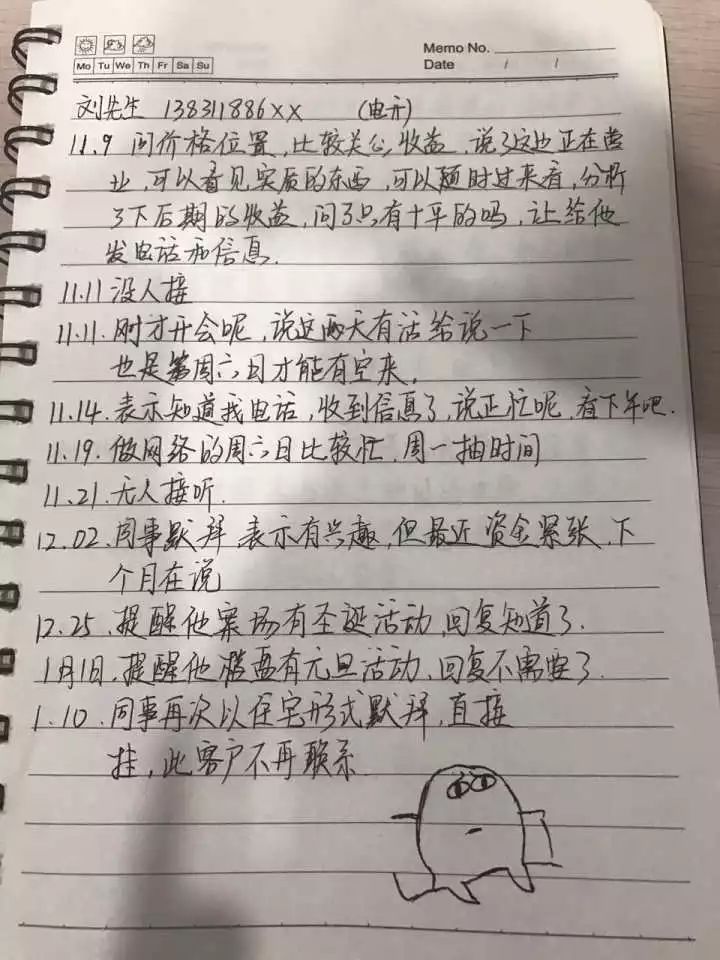 Memo No.
Mo Tu We Th Fr Sa Su
Date / /
刘先生 138311886xx (电开)
11.9 问价格位置，比较关心收益，说了这边正在营
业，可以看见实质的东西，可以随时过来看，分析
了下后期的收益，问了只有十平的吗，让给他
发电话和信息.
11.11 没人接
11.11. 刚才开会呢，说这两天有活给说一下
也是等周六日才能有空来.
11.14. 表示知道我电话，收到信息了，说正忙呢，看下午吧.
11.19. 做网络的周六日比较忙，周一抽时间
11.21. 无人接听.
12.02. 同事默拜，表示有兴趣，但最近资金紧张，下
个月在说
12.25. 提醒他案场有圣诞活动，回复知道了.
1月1日，提醒他楼盘有元旦活动，回复不需要了.
1.10. 同事再次以住宅形式默拜，直接
挂，此客户不再联系.